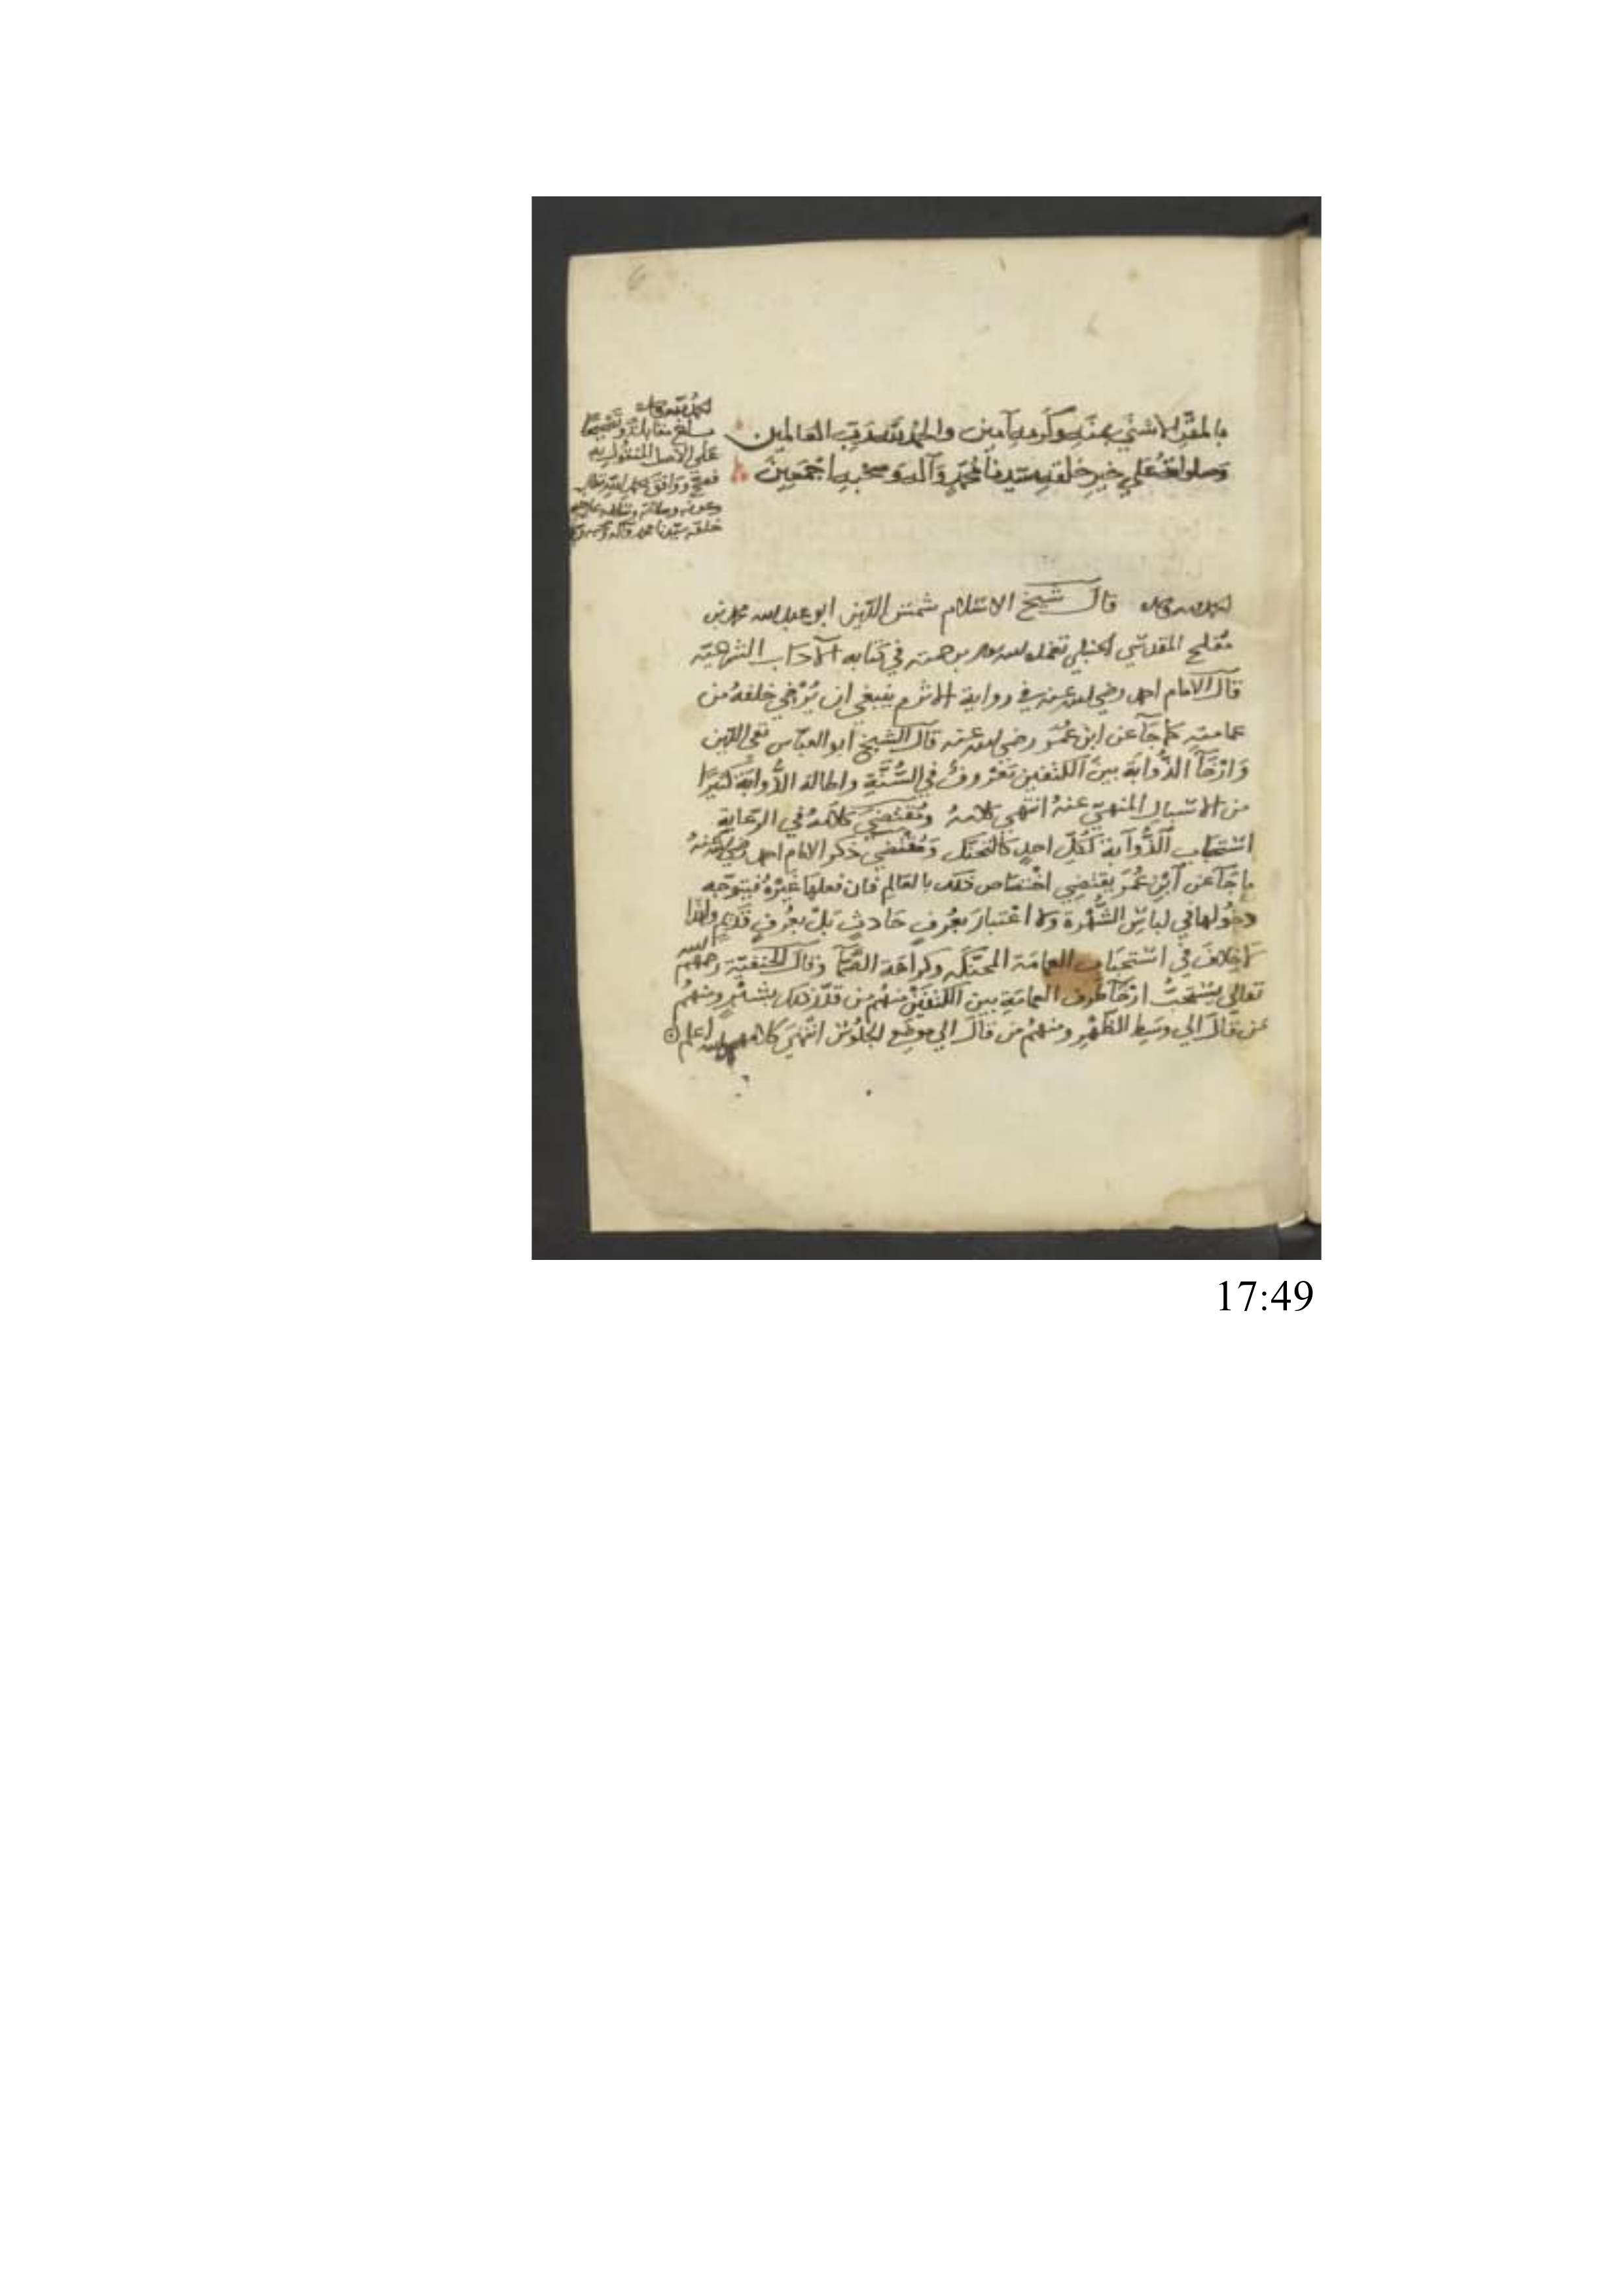 بالمقر الاسنى بمنه وكرمه آمين والحمد لله رب العالمين
وصلواته على خير خلقه سيدنا محمد وآله وصحبه اجمعين
الحمد لله
بلغ مقابلة وتصحيحا
على الاصل المنقول منه
فصح ووافق بحمد الله تعالى
وعونه وصلاته وسلامه على
خلقه سيدنا محمد وآله
الحمد لله قال شيخ الاسلام شمس الدين ابو عبد الله محمد بن
مفلح المقدسي الحنبلي تغمده الله برحمته في كتابه الآداب الشرعية
قال الامام احمد رضي الله عنه في رواية الاثرم ينبغي ان يُرْخي خلفهُ من
عمامته كما جآ عن ابن عُمَر رضي الله عنه قال الشيخ ابو العباس تقي الدين
وَارْخَآ الذُّوابَة بين الكتفين معْروفٌ في السُّنَّةِ واطالة الذُّوابة كثيرًا
من الاسبال المنهيّ عنهُ انتهى كلامهُ ومُقتضى كلامهُ في الرعاية
استحباب الذُّوآبة لكلّ احدٍ كالتحنك وَمُقْتضى ذكر الامام احمد رضي الله عنهُ
ما جَآ عن ابْنِ عُمَرَ يقتضِي اخْتصَاص ذلك بالعَالِم فان فعلهَا غَيْرُهُ فيتوجّه
دخُولها في لباسِ الشُّهْرة وَلا اعْتبارَ بعُرفٍ حَادثٍ بَلْ بعُرفٍ قديمٍ ولهذا
لاخلافَ في اسْتحبَاب العمامَة المحنّكَه وكراهَة الصَّمآ وقال الحنفيّة رحمهم الله
تعالى يُسْتحَبُّ ارْخآ طرف العمامَةِ بين الكتفَيْن منهُم من قدّر ذلك بشبْرٍ ومنهُم
من قالَ الى وسَطِ الظّهْرِ ومنهُمْ من قالَ الى موضِع الجلُوس انتهَى كلامه والله اعلم
17:49